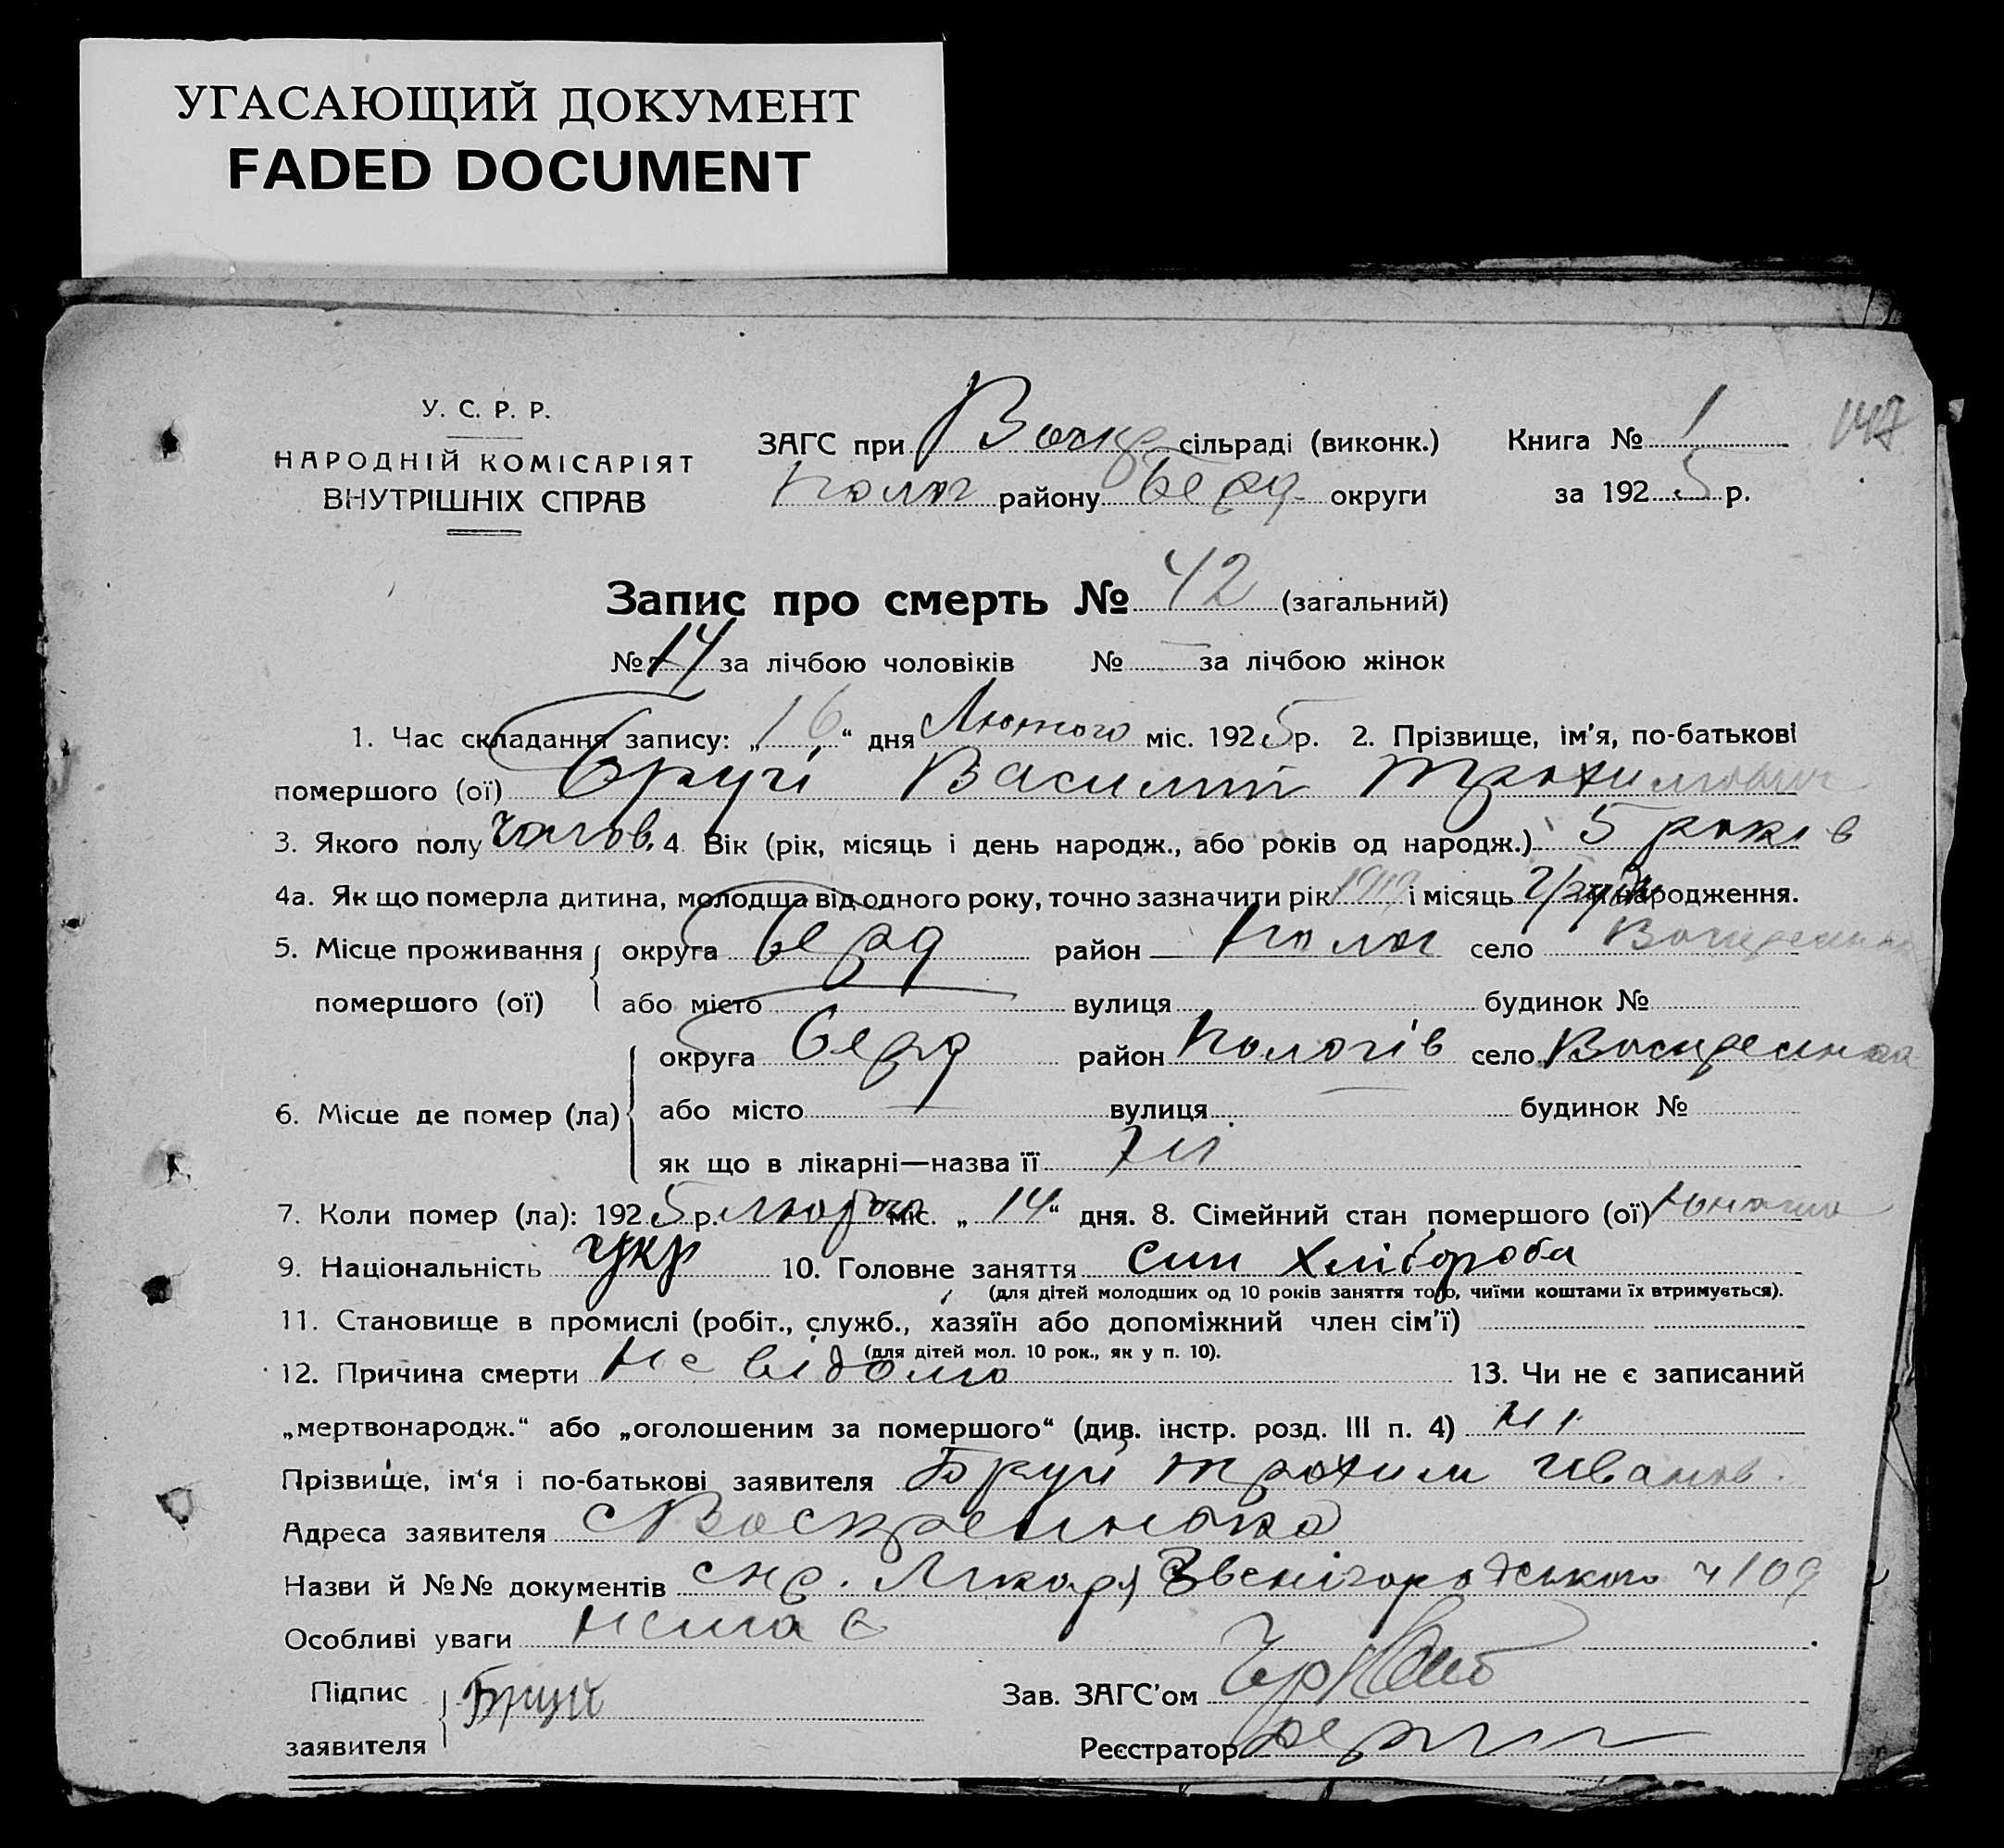 УГАСАЮЩИЙ ДОКУМЕНТ
FADED DOCUMENT
У. С. Р. Р.
НАРОДНІЙ КОМІСАРІЯТ
ВНУТРІШНІХ СПРАВ
ЗАГС при сільраді (виконк.)
Полог району Берд округи
Книга № 1
147
за 1925 р.
Запис про смерть № 42 (загальний)
№ 14 за лічбою чоловіків № за лічбою жінок
1. Час складання запису: „16“ дня Лютого міс. 1925 р. 2. Прізвище, ім'я, по-батькові
помершого (ої) Бруй Василий Трохимович
3. Якого полу чолов. 4 Вік (рік, місяць і день народж., або років од народж.) 5 років
4а. Як що померла дитина, молодша від одного року, точно зазначити рік 1919 і місяць грудн народження.
5. Місце проживання помершого (ої) округа Берд район Полог село Воскресенка
або місто вулиця будинок №
6. Місце де помер (ла) округа Берд район Пологів село Воскресенка
або місто вулиця будинок №
як що в лікарні—назва її ні
7. Коли помер (ла): 1925 р. лютого міс. „14“ дня. 8. Сімейний стан помершого (ої)
9. Національність укр 10. Головне заняття син хлібороба
(для дітей молодших од 10 років заняття того, чиїми коштами їх втримується).
11. Становище в промислі (робіт., служб., хазяїн або допоміжний член сім'ї)
(для дітей мол. 10 рок., як у п. 10).
12. Причина смерти не відомо 13. Чи не є записаний
„мертвонародж.“ або „оголошеним за помершого“ (див. інстр. розд. III п. 4) ні
Прізвище, ім'я і по-батькові заявителя Бруй Трохим Иванов.
Адреса заявителя с Воскресенка
Назви й №№ документів спр. Лікаря Звенігородського ч 109
Особливі уваги немає
Підпис заявителя Бруй
Зав. ЗАГС'ом
Реєстратор